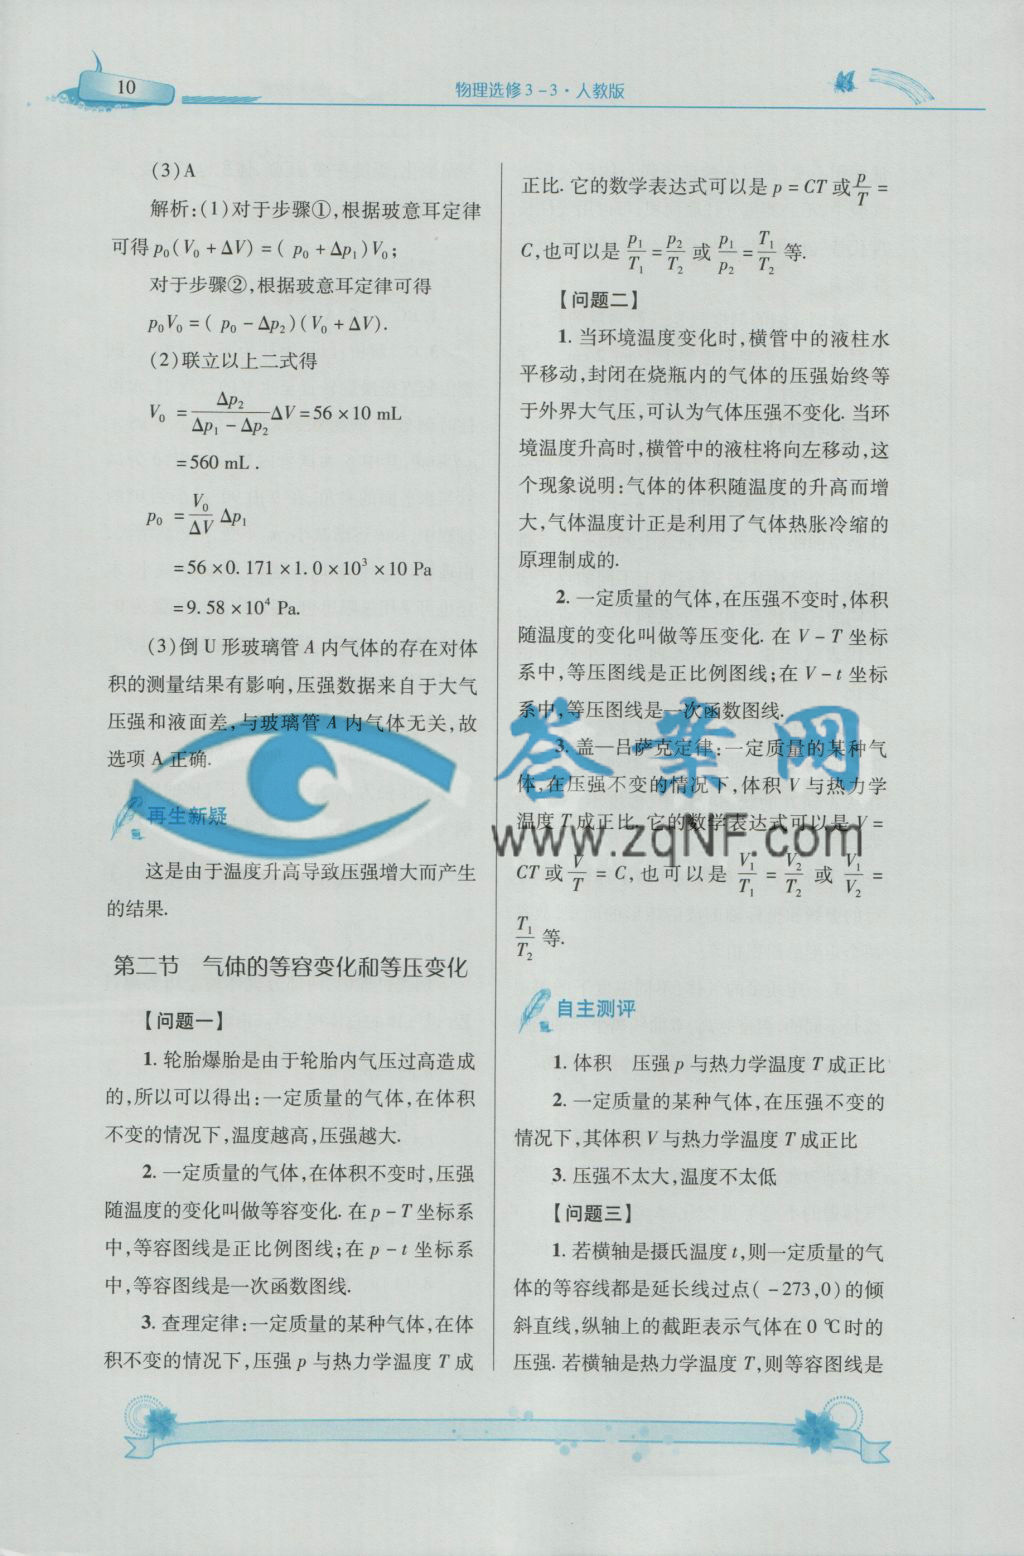 10
物理选修3-3·人教版
(3)A
解析:(1)对于步骤①,根据玻意耳定律
可得p₀(V₀+ΔV)=(p₀+Δp₁)V₀;
对于步骤②,根据玻意耳定律可得
p₀V₀=(p₀-Δp₂)(V₀+ΔV).
(2)联立以上二式得
V₀=Δp₂/(Δp₁-Δp₂)ΔV=56×10 mL
=560 mL.
p₀=V₀/ΔV Δp₁
=56×0.171×1.0×10³×10 Pa
=9.58×10⁴ Pa.
(3)倒U形玻璃管A内气体的存在对体
积的测量结果有影响,压强数据来自于大气
压强和液面差,与玻璃管A内气体无关,故
选项A正确.
再生新疑
这是由于温度升高导致压强增大而产生
的结果.
第二节 气体的等容变化和等压变化
【问题一】
1. 轮胎爆胎是由于轮胎内气压过高造成
的,所以可以得出:一定质量的气体,在体积
不变的情况下,温度越高,压强越大.
2. 一定质量的气体,在体积不变时,压强
随温度的变化叫做等容变化. 在p-T坐标系
中,等容图线是正比例图线;在p-t坐标系
中,等容图线是一次函数图线.
3. 查理定律:一定质量的某种气体,在体
积不变的情况下,压强p与热力学温度T成
正比. 它的数学表达式可以是p=CT或p/T=
C,也可以是p₁/T₁=p₂/T₂或p₁/p₂=T₁/T₂等.
【问题二】
1. 当环境温度变化时,横管中的液柱水
平移动,封闭在烧瓶内的气体的压强始终等
于外界大气压,可认为气体压强不变化. 当环
境温度升高时,横管中的液柱将向左移动,这
个现象说明:气体的体积随温度的升高而增
大,气体温度计正是利用了气体热胀冷缩的
原理制成的.
2. 一定质量的气体,在压强不变时,体积
随温度的变化叫做等压变化. 在V-T坐标
系中,等压图线是正比例图线;在V-t坐标
系中,等压图线是一次函数图线.
3. 盖—吕萨克定律:一定质量的某种气
体,在压强不变的情况下,体积V与热力学
温度T成正比. 它的数学表达式可以是V=
CT或V/T=C,也可以是V₁/T₁=V₂/T₂或V₁/V₂=
T₁/T₂等.
自主测评
1. 体积 压强p与热力学温度T成正比
2. 一定质量的某种气体,在压强不变的
情况下,其体积V与热力学温度T成正比
3. 压强不太大,温度不太低
【问题三】
1. 若横轴是摄氏温度t,则一定质量的气
体的等容线都是延长线过点(-273,0)的倾
斜直线,纵轴上的截距表示气体在0 ℃时的
压强. 若横轴是热力学温度T,则等容图线是
答案网
www.zqNF.com